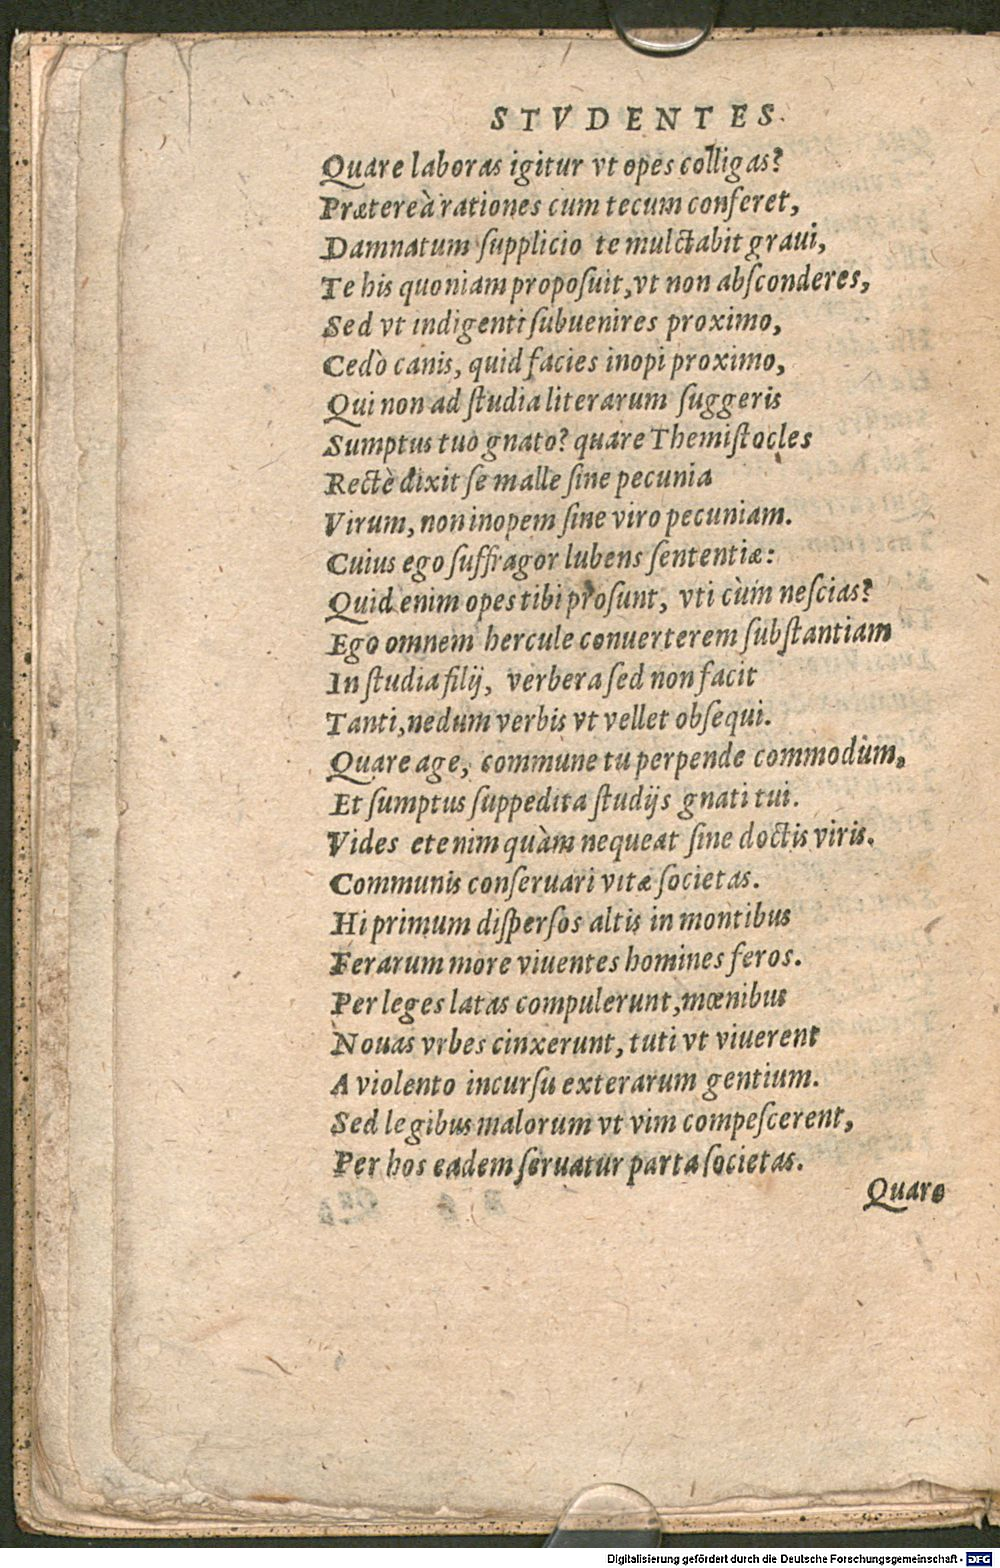 STVDENTES.
Quare laboras igitur vt opes colligas?
Prætereà rationes cum tecum conferet,
Damnatum ſupplicio te mulctabit graui,
Te his quoniam propoſuit, vt non abſconderes,
Sed vt indigenti ſubuenires proximo,
Cedò canis, quid facies inopi proximo,
Qui non ad ſtudia literarum ſuggeris
Sumptus tuo gnato? quare Themiſtocles
Rectè dixit ſe malle ſine pecunia
Virum, non inopem ſine viro pecuniam.
Cuius ego ſuffragor lubens ſententiæ:
Quid enim opes tibi proſunt, vti cùm neſcias?
Ego omnem hercule conuerterem ſubſtantiam
In ſtudia filij, verbera ſed non facit
Tanti, nedum verbis vt vellet obſequi.
Quare age, commune tu perpende commodùm,
Et ſumptus ſuppedita ſtudijs gnati tui.
Vides etenim quàm nequeat ſine doctis viris.
Communis conſeruari vitæ ſocietas.
Hi primum diſperſos altis in montibus
Ferarum more viuentes homines feros.
Per leges latas compulerunt, mœnibus
Nouas vrbes cinxerunt, tuti vt viuerent
A violento incurſu exterarum gentium.
Sed legibus malorum vt vim compeſcerent,
Per hos eadem ſeruatur parta ſocietas.
Quare
Digitalisierung gefördert durch die Deutsche Forschungsgemeinschaft - DFG